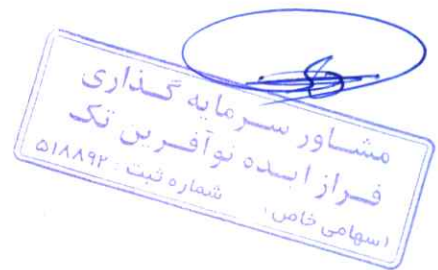 مشاور سرمایه گذاری
فراز ایده نوآفرین تک
(سهامی خاص) شماره ثبت: ۵۱۸۸۹۲